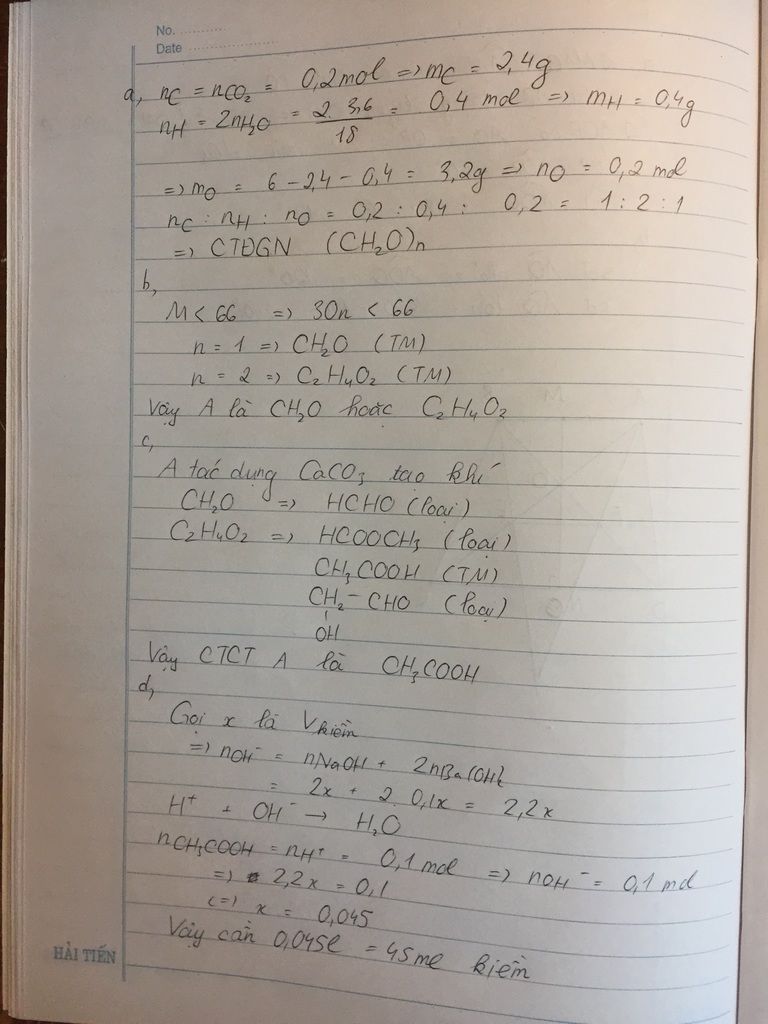 No. ............
Date ............
a, nC = nCO2 = 0,2mol => mC = 2,4g
nH = 2nH2O = 2. 3,6 / 18 = 0,4 mol => mH = 0,4g
=> mO = 6 - 2,4 - 0,4 = 3,2g => nO = 0,2 mol
nC : nH : nO = 0,2 : 0,4 : 0,2 = 1 : 2 : 1
=> CTĐGN (CH2O)n
b,
M < 66 => 30n < 66
n = 1 => CH2O (TM)
n = 2 => C2H4O2 (TM)
Vậy A là CH2O hoặc C2H4O2
c,
A tác dụng CaCO3 tạo khí
CH2O => HCHO (loại)
C2H4O2 => HCOOCH3 (loại)
CH3COOH (TM)
CH2 - CHO (loại)
OH
Vậy CTCT A là CH3COOH
d,
Gọi x là Vkiềm
=> nOH- = nNaOH + 2nBa(OH)2
= 2x + 2. 0,1x = 2,2x
H+ + OH- → H2O
nCH3COOH = nH+ = 0,1 mol => nOH- = 0,1 mol
=> 2,2x = 0,1
(=) x = 0,045
Vậy cần 0,045l = 45ml kiềm
HẢI TIẾN